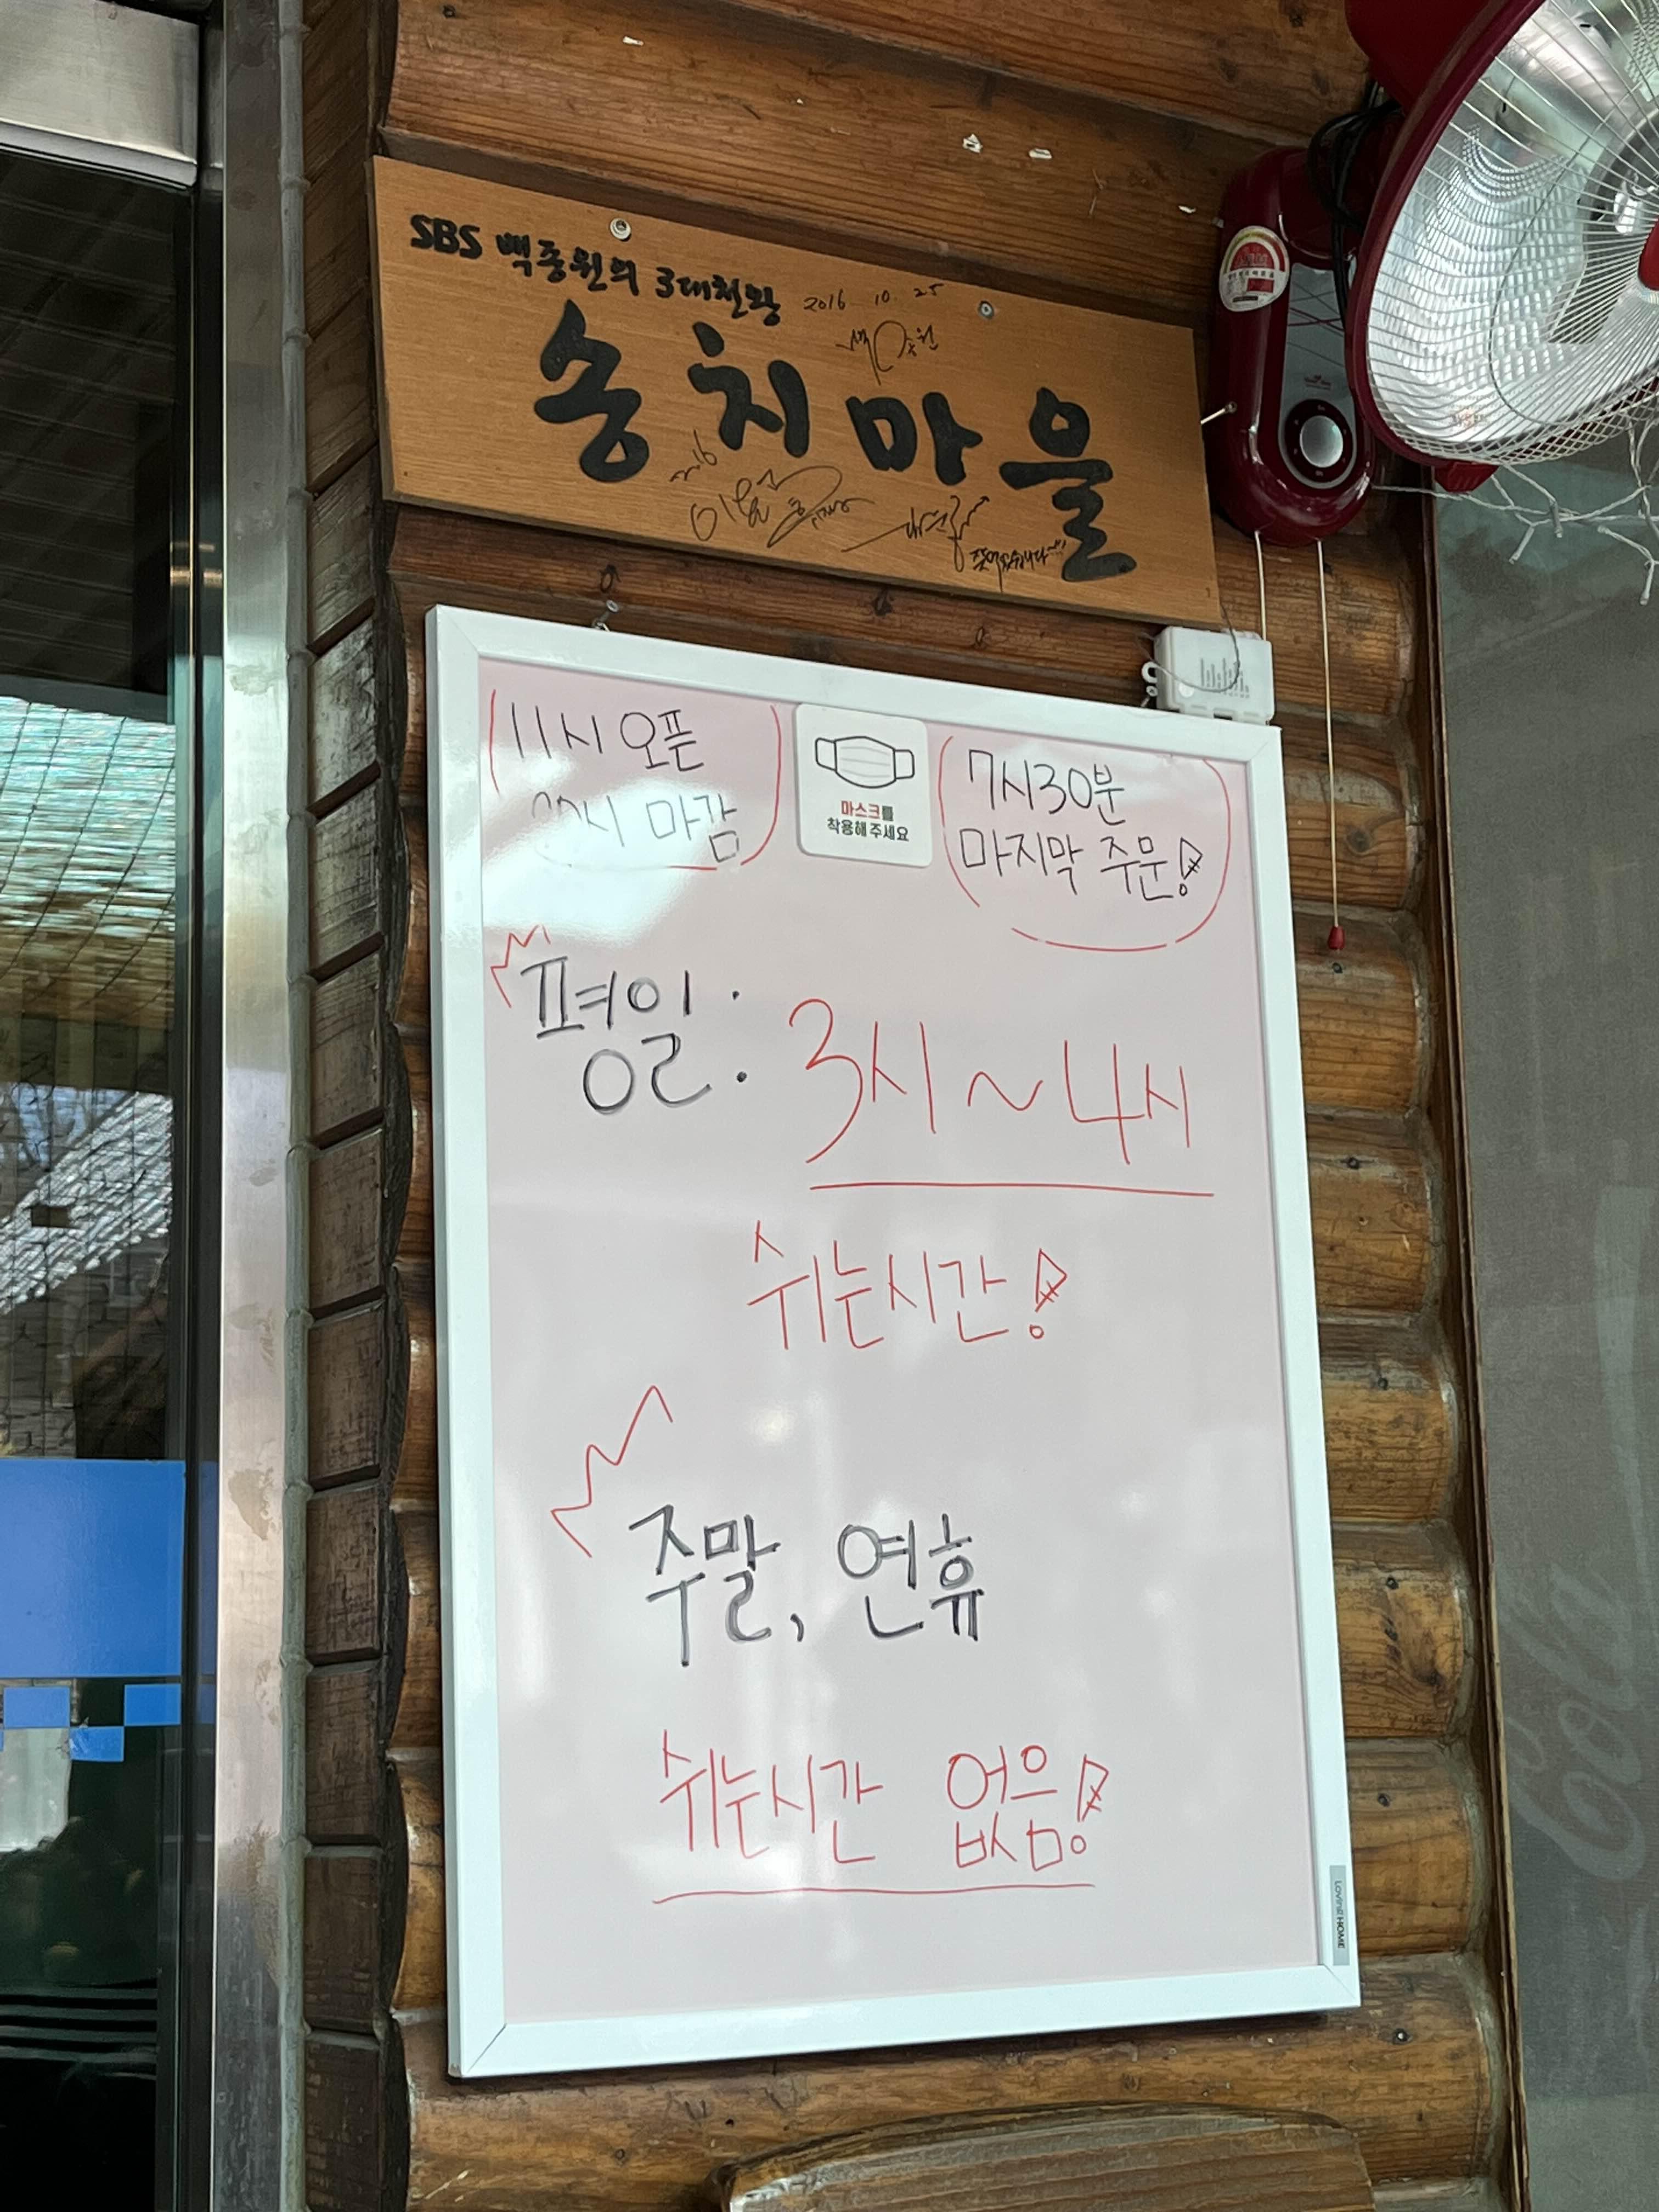 SBS 백종원의 3대천왕 2016. 10. 25
백종원
송치마을
2016
11시 오픈
시 마감
마스크를
착용해 주세요
7시30분
마지막 주문!
평일: 3시~4시
쉬는시간!
주말, 연휴
쉬는시간 없음!
LOVING HOME
Cola